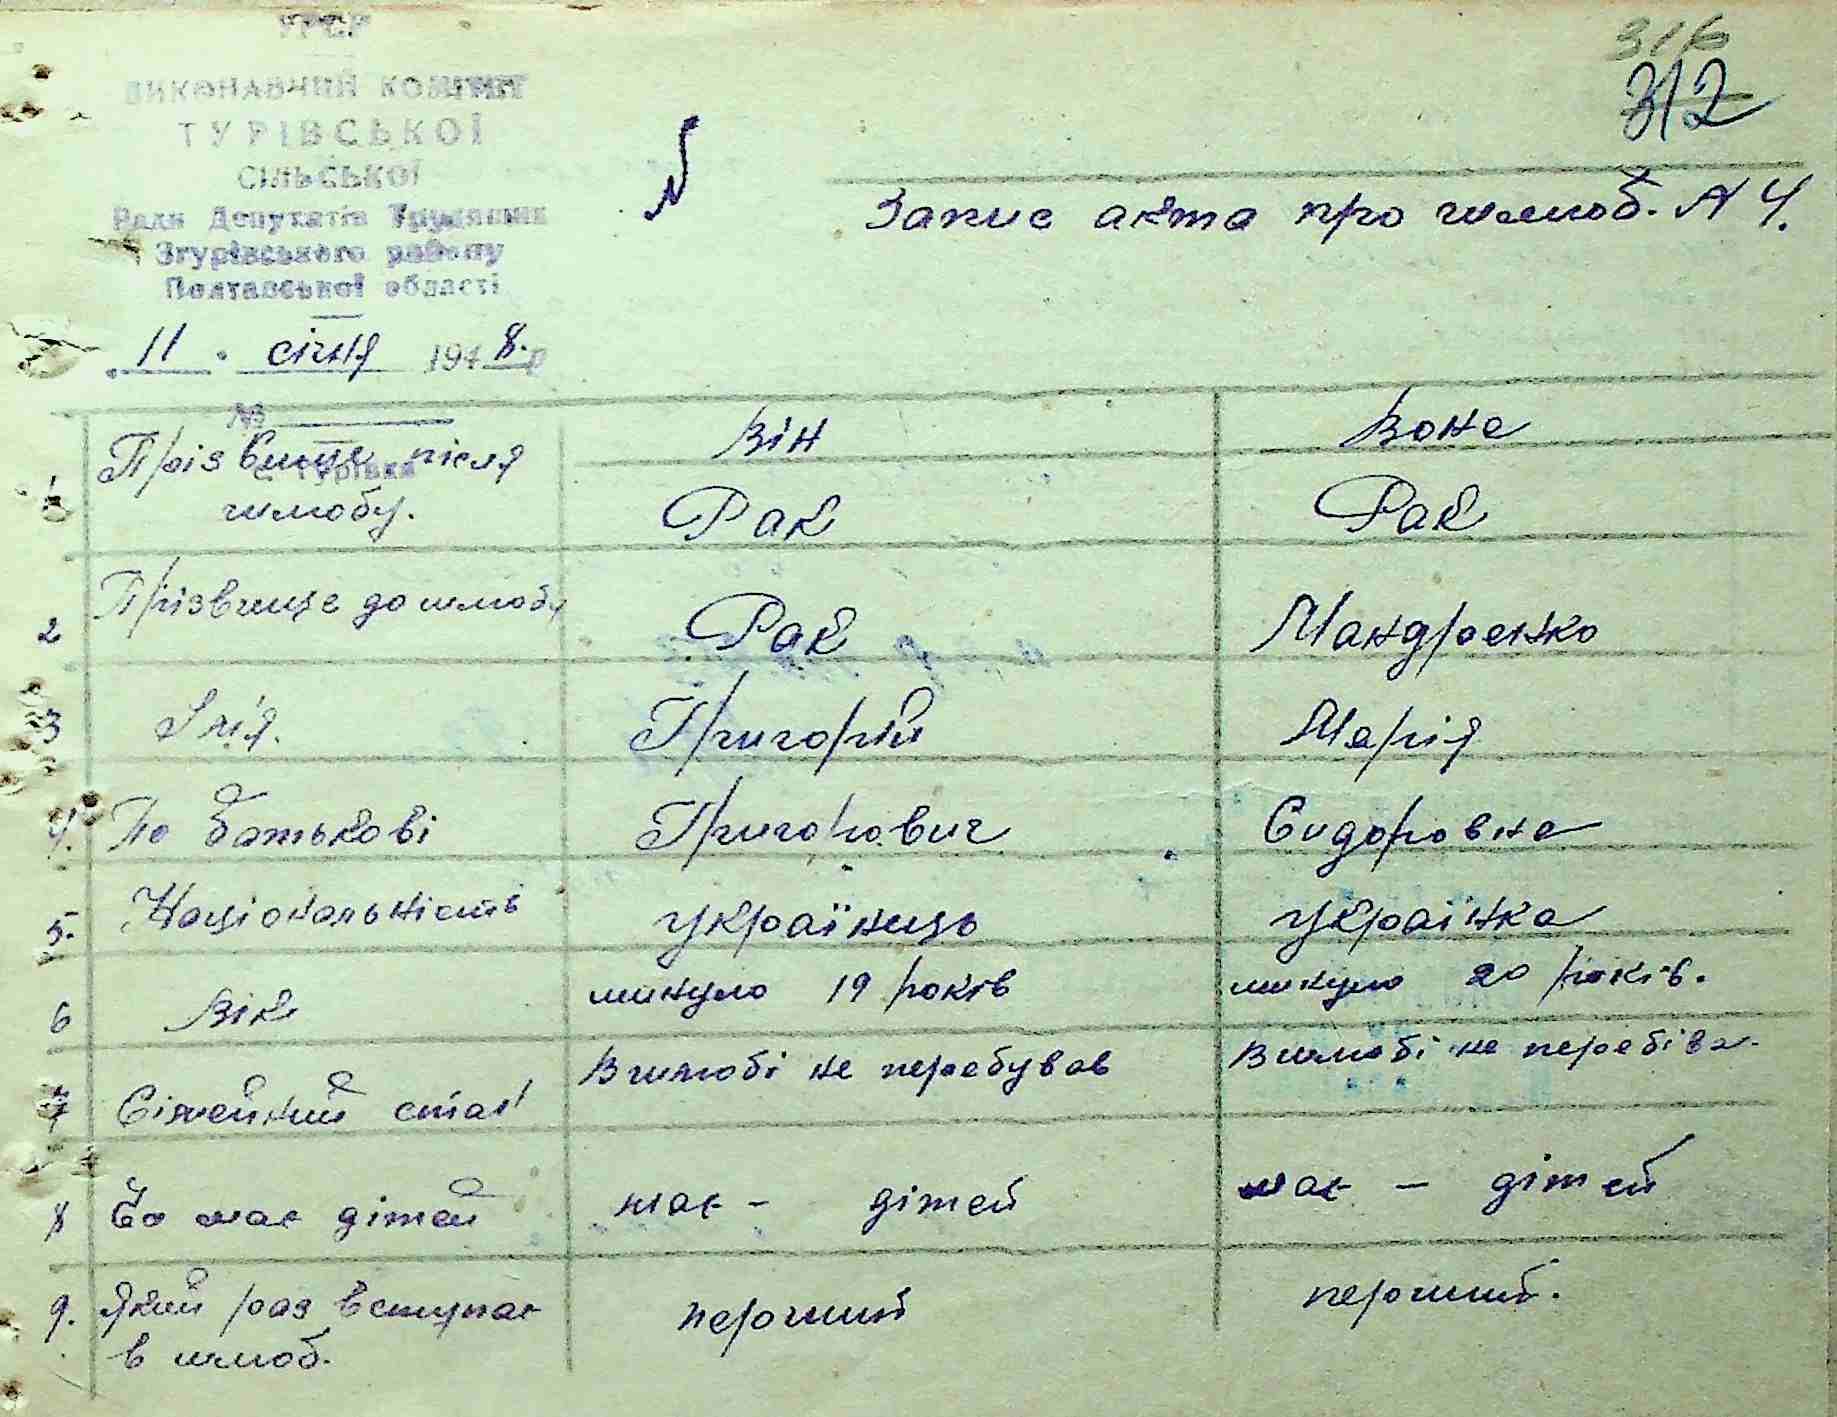 316
312
УРСР
ВИКОНАВЧИЙ КОМІТЕТ
ТУРІВСЬКОЇ
СІЛЬСЬКОЇ
Ради Депутатів Трудящих
Згурівського району
Полтавської області
11 . січня 1948.р
№
с. Турівка
Запис акта про шлюб. № 4.
Він Вона
1 Прізвище після шлюбу. Рак Рак
2 Прізвище до шлюбу Рак Мандренко
3 Імія. Григорій Марія
4. По батькові Григорович Сидоровна
5. Національність українець українка
6 Вік минуло 19 років минуло 20 років.
7 Сімейний стан В шлюбі не перебував В шлюбі не перебіва.
8 Чи має дітей має – дітей має – дітей
9. Який раз вступає перший перший.
в шлюб.